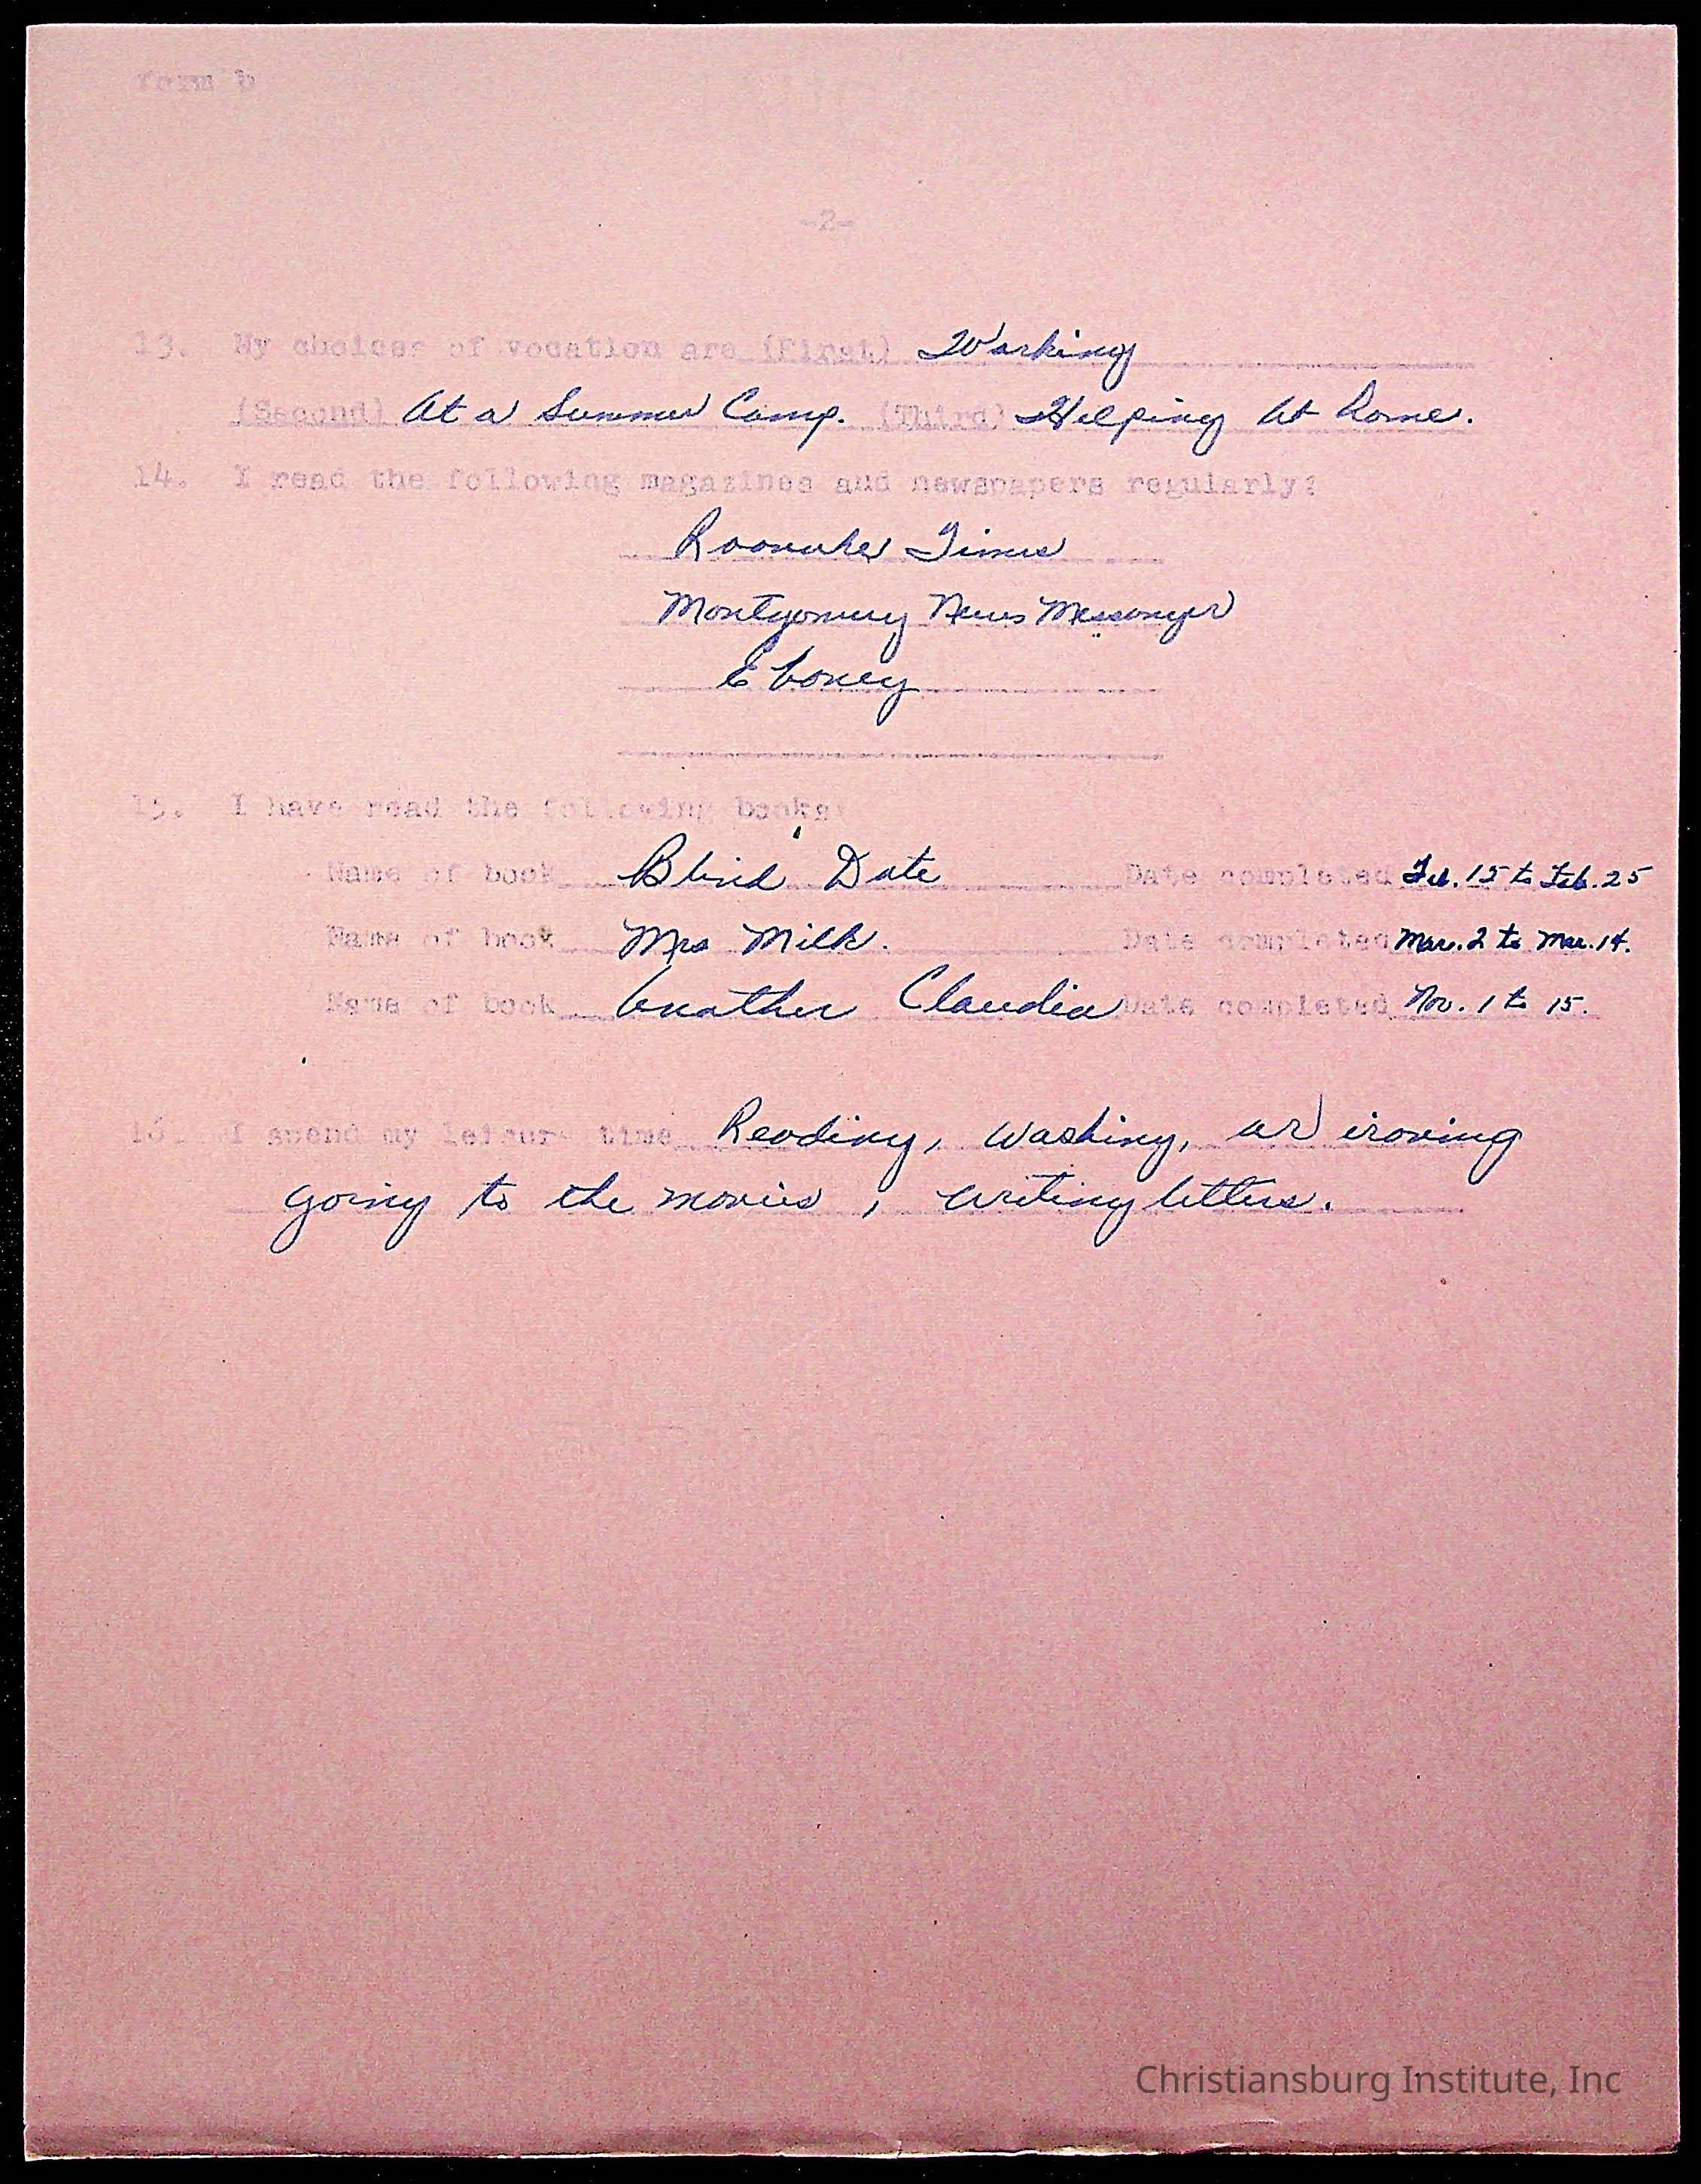 Form B
-2-
13. My choices of vocation are (First) Working
(Second) At a Summer Camp. (Third) Helping At Home.
14. I read the following magazines and newspapers regularly:
Roanoke Times
Montgomery News Messenger
Eboney
15. I have read the following books:
Name of book Blind Date Date completed Feb. 15 to Feb. 25
Name of book Mrs Milk. Date completed Mar. 2 to Mar. 14.
Name of book Another Claudia Date completed Nov. 1 to 15.
16. I spend my leisure time Reading, Washing, or ironing
going to the movies, writing letters.
Christiansburg Institute, Inc